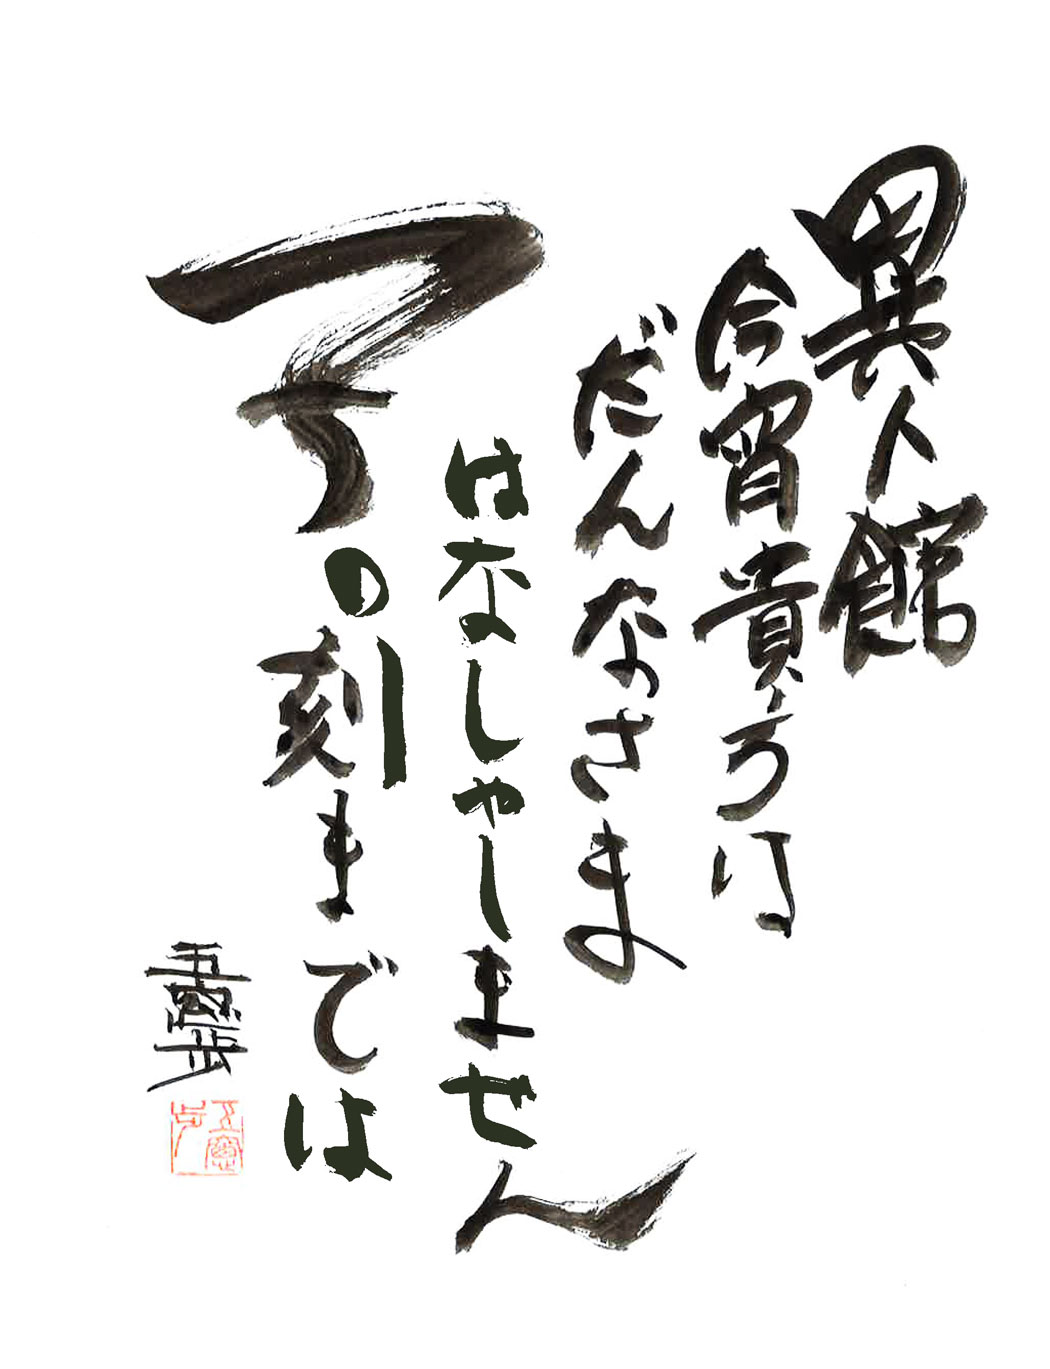 異人館
今宵貴方は
だんなさま
はなしゃしません
子の刻までは